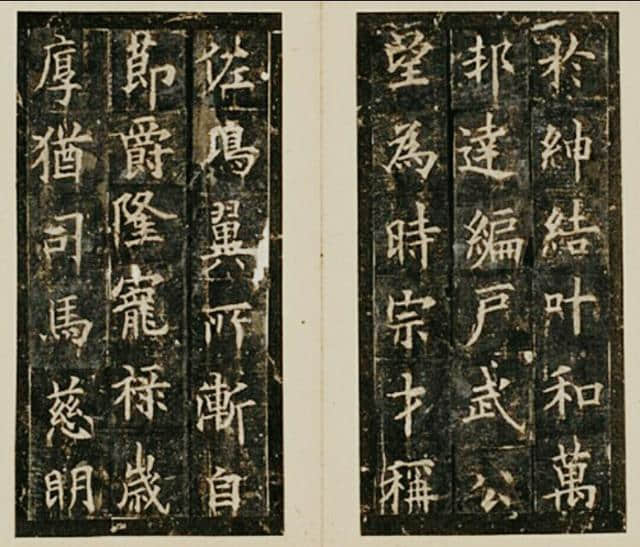 於紳結叶和萬
邦達編戶武公
望為時宗才稱
佐翼所漸自
節爵隆寵祿歲
厚猶司馬慈明